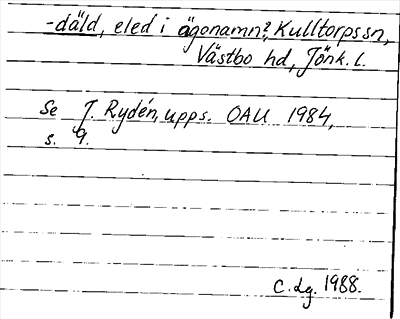 -däld, eled i ägonamn?, Kulltorps sn,
Västbo hd, Jönk. l.
Se J. Rydén, upps. OAU 1984,
s. 9.
C. Lg. 1988.